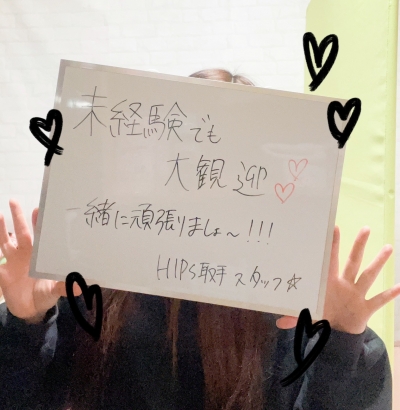 未経験でも
大観迎
一緒に頑張りましょ〜!!!
HIPS取手 スタッフ☆